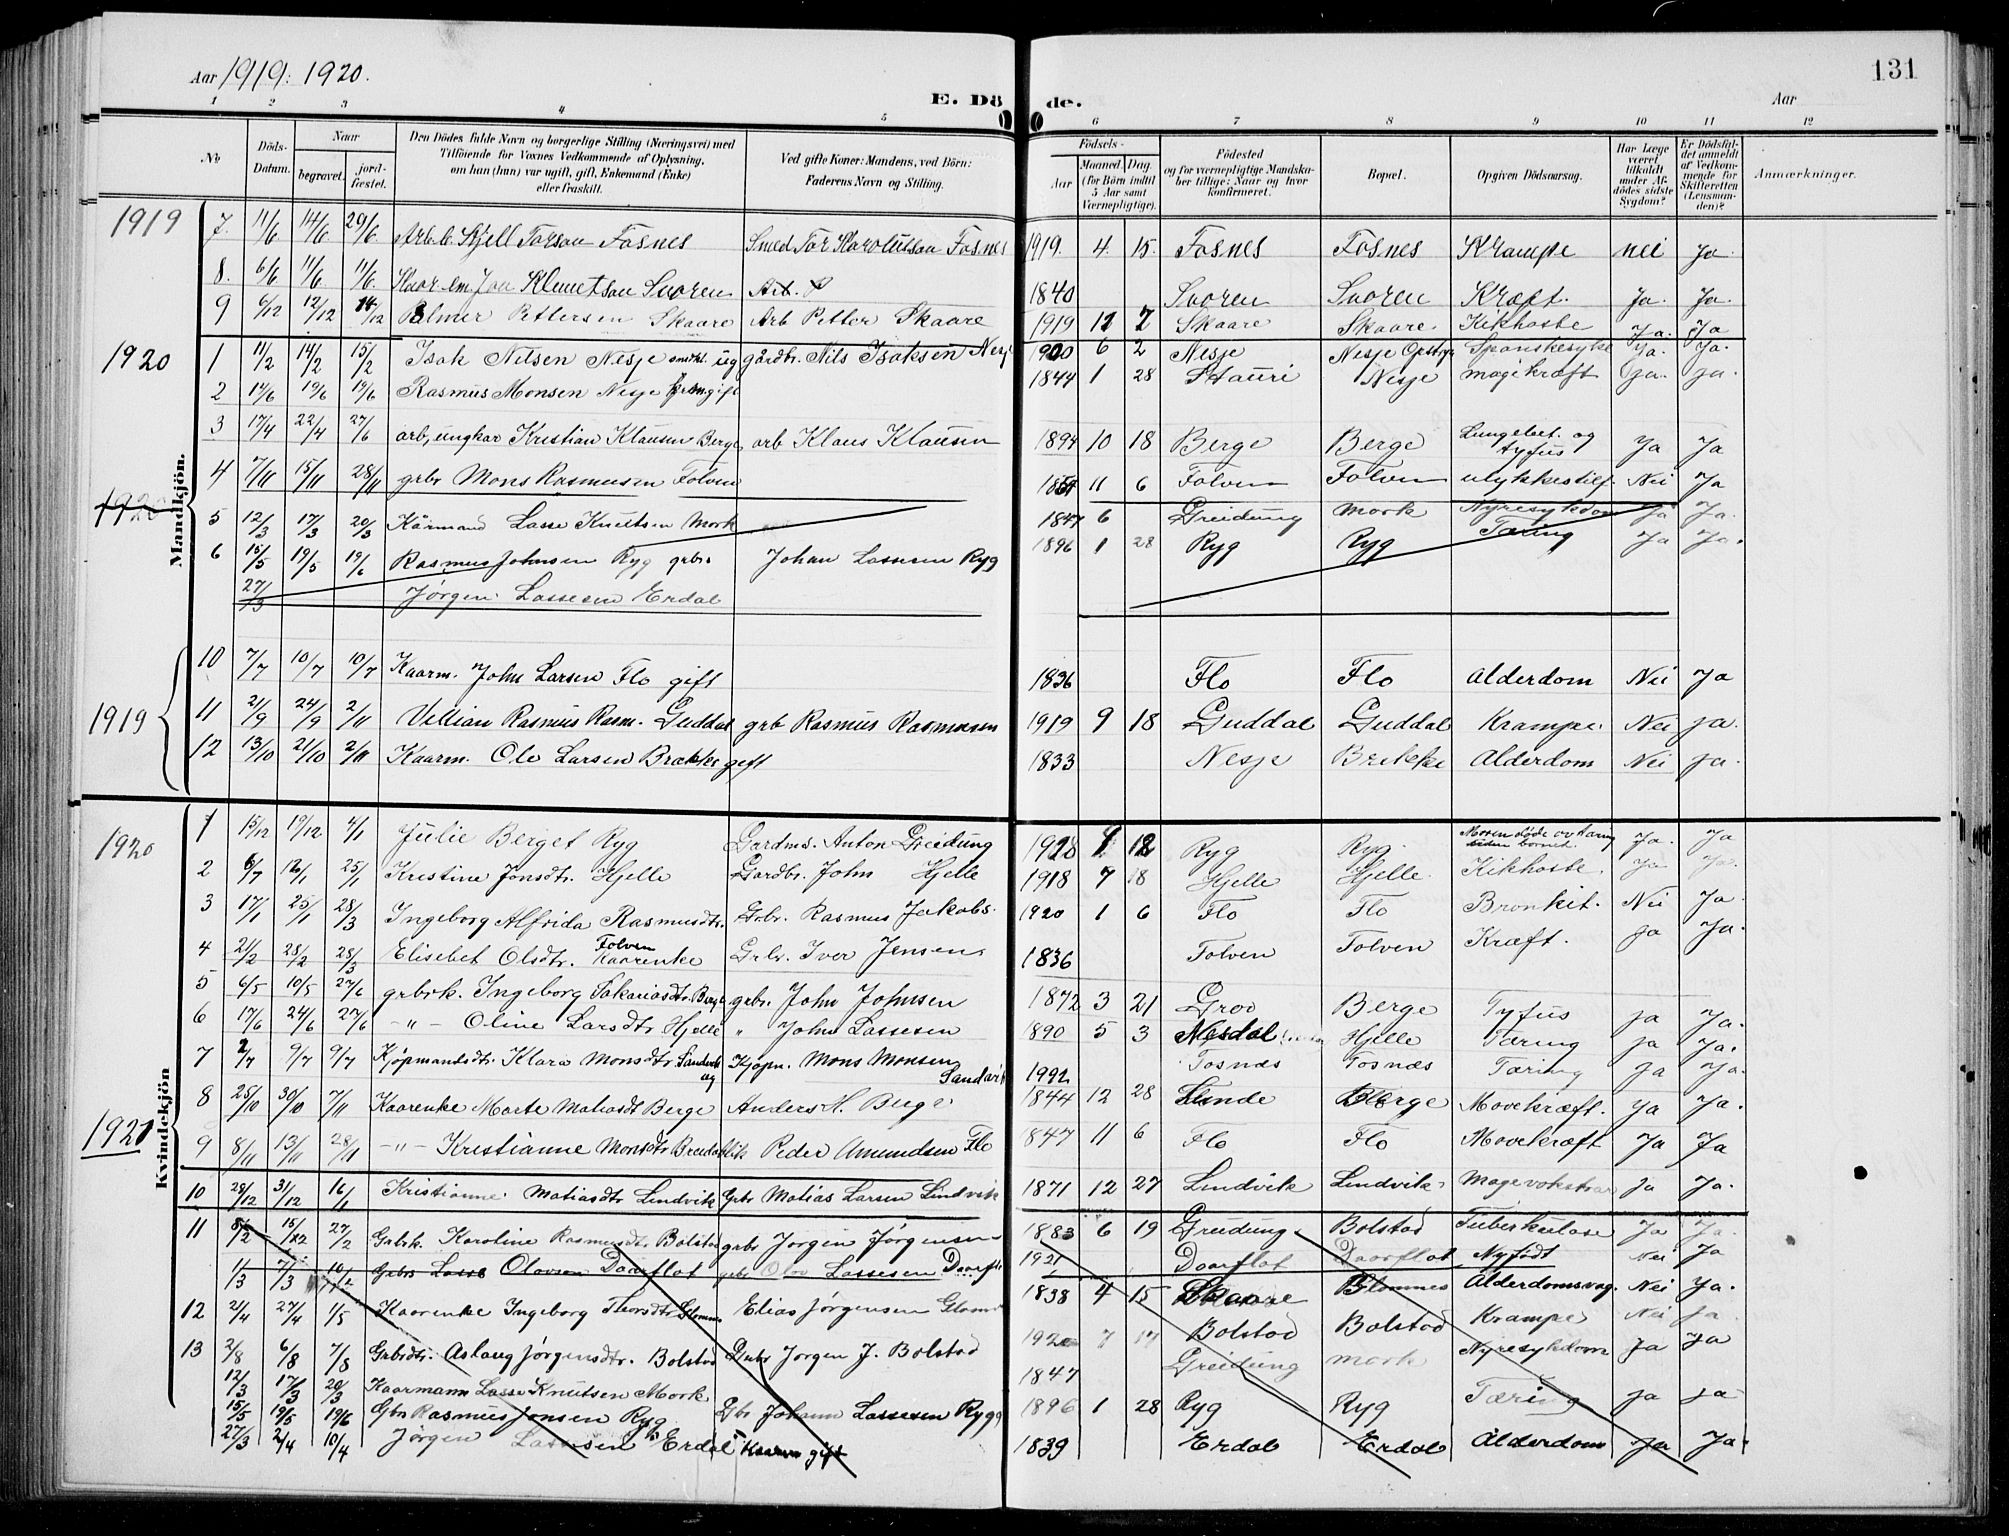 Aar 1919: 1920.
E. Döde.
Aar
131
1 2 3 4 5 6 7 8 9 10 11 12
No
Döds-Datum.
Naar
begravet.
jord-fæstet.
Den Dödes fulde Navn og borgerlige Stilling (Næringsvei) med Tilföiende for Voxnes Vedkommende af Oplysning, om han (hun) var ugift, gift, Enkemand (Enke) eller fraskilt.
Ved gifte Koner: Mandens, ved Börn: Faderens Navn og Stilling.
Födsels-
Aar
Maaned. Dag.
(for Börn indtil 5 Aar samt Værnepligtige).
Födested og for værnepligtige Mandskaber tillige: Naar og hvor konfirmeret.
Bopæl.
Opgiven Dödsaarsag.
Har Læge været tilkaldt under Afdödes sidste Sygdom?
Er Dödsfaldet anmeldt af Vedkommende for Skifteretten (Lensmanden)?
Anmærkninger.
Mandkjön.
1919
7. 11/6 14/6 29/6 Arb.b. Kjell Torsen Fosnes Smed Tor Karolussen Fosnes 1919. 4. 15. Fosnes Fosnes Krampe nei Ja.
8. 6/6 11/6 11/6 Kaar em Jon Klemetsen Svoren 1840 Svoren Svoren Kræft. Ja. Ja.
9 6/12 12/12 14/12 Palmer Pettersen Skaare Arb Petter Skaare 1919 11 7 Skaare Skaare Kikhoste Ja. Ja
1920
1 11/2 14/2 15/2 Isak Nilsen Nesje ug gårdbr. Nils Isaksen Nesje 1900 6 2 Nesje Nesje Spanskesyke Ja. Ja.
2 14/6 19/6 19/6 Rasmus Monsen Nesje gift 1844 1 28 Stauri Nesje magekræft Ja. Ja.
3 17/4 22/4 27/6 arb, ungkar Kristian Klausen Berge arb Klaus Klausen 1894 10 18 Berge Berge Lungebet. og tyfus Ja Ja
4 7/11 15/11 28/11 grbr Mons Rasmussen Folven 11 6 Folven Folven ulykkestilf. Nei Ja
5 12/3 17/3 20/3 Kårmand Lasse Knutsen Mork 1847 6 Greidung Mork Nyresykdom Ja Ja.
6 15/5 19/5 19/6 Rasmus Johnsen Ryg grbr. Johan Lassesen Ryg 1896 1 28 Ryg Ryg Tæring Ja Ja.
27/3 Jørgen Lassesen Erdal
1919
10 7/7 10/7 10/7 Kaarm. John Larsen Flo gift 1836 Flo Flo Alderdom Nei Ja
11 21/9 24/9 2/11 Villian Rasmus Rasm. Guddal grb Rasmus Rasmussen 1919 9 18 Guddal Guddal Krampe. Nei Ja.
12 13/10 21/10 2/11 Kaarm. Ole Larsen Brække gift 1833 Nesje Brekke Alderdom Nei Ja.
Kvindekjön
1920
1 15/12 19/12 4/1 Julie Berget Ryg Gardms. Anton Greidung Ryg Ryg. Moren døde av tæring siden barnet. Ja. Ja
2 6/7 25/1 Kristine Jonsdtr. Hjelle Gardbr. John Hjelle 1918 7 18 Hjelle Hjelle. Kikhoste. Ja Ja.
3 17/1 25/1 28/3 Ingeborg Alfrida Rasmusdtr. Grbr. Rasmus Jakobs. 1920 1 6 Flo Flo Bronkit. Nei Ja.
4 21/2 28/2 28/3 Elisebet Olsdtr. Folven Kaarenke Grbr. Iver Jensen 1836 Folven Folven Kræft. Ja Ja.
5 6/5 10/5 27/6 grbrk. Ingeborg Sakariasdtr Berge grbr. John Johnsen 1872 3 21 Grov Berge Tyfus Ja Ja.
6 17/6 24/6 27/6 -"- Oline Larsdtr Hjelle " John Lassesen 1890 5 3 Nesdal Hjelle Tæring Ja Ja.
7 2/7 9/7 9/7 Kjøpmandsdtr. Klara Monsdtr. Sandvik ug Kjøpm. Mons Monsen Sandvik Tosnæs Tosnæs Tæring Ja Ja.
8 25/10 30/10 7/11 Kaarenke Marte Matiasdt Berge Anders H. Berge 1844 12 28 Lunde Berge Mavekræft. Ja Ja.
1921
9 8/11 13/11 28/11 -"- Kristianne Monsdtr Breidablik Peder Amundsen Flo 1847 11 6 Flo Flo Mavekræft Ja Ja
10 28/12 31/12 16/1 Kristianne Matiasdtr Lindvik Grbr Matias Larsen Lindvik 1871 12 27 Lindvik Lindvik Ja Ja.
11 8/2 27/2 Grbrk. Karoline Rasmusdtr Bolstad grbr Jørgen Jørgensen 1883 6 19 Greidung Bolstad Tuberkulose Ja Ja.
1/3 7/3 Grbr Lasse Olavson Daarflot grbr Olav Lassesen Daarflot 1921 Daarflot Daarflot Nyfødt Nei Ja
12 2/4 27/4 1/5 Kaarenke Ingeborg Thorsdtr Glomnes Elias Jørgensen Glomnes 1838 4 15 Skaare Glomnes Alderdomsvag. Nei Ja.
13 2/8 6/8 7/8 Grbrdtr. Aslaug Jørgensdtr. Bolstad Grbr Jørgen J. Bolstad 7 17 Bolstad Bolstad Krampe Nei Ja
12/3 17/3 20/3 Kaarmann Lasse Knutsen Mork 1847 Greidung Mork Nyresykdom Ja Ja
15/5 19/5 19/6 Gbr Rasmus Jonsen Ryg Gbr Johann Lassesen Rygg 1896 1 28 Ryg Ryg Tæring Ja Ja
27/3 2/4 10/4 Jørgen Lassesen Erdal Kaarm gift 1839 Erdal Erdal Alderdom Ja Ja.